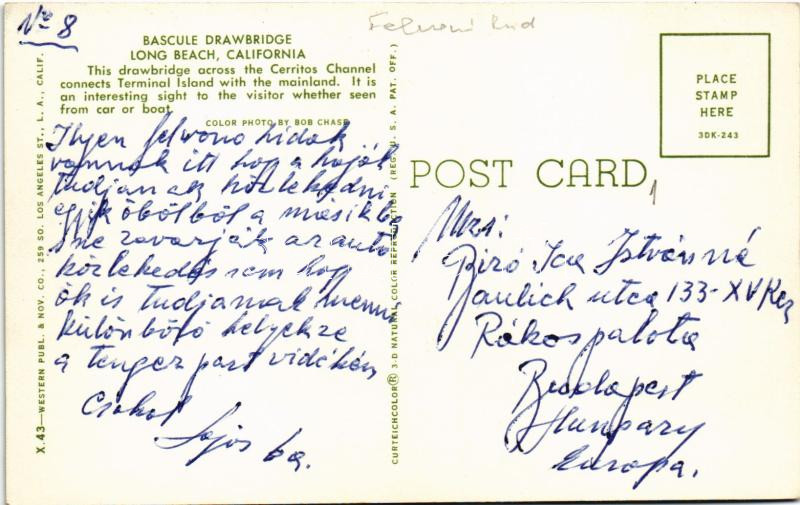 No 8
BASCULE DRAWBRIDGE
LONG BEACH, CALIFORNIA
This drawbridge across the Cerritos Channel
connects Terminal Island with the mainland. It is
an interesting sight to the visitor whether seen
from car or boat.
COLOR PHOTO BY BOB CHASE
Ilyen felvono hidak
vannak itt hog a hajók
tudjanak közlekedni
egyik öbölböl a másikb
s ne zavarják az autó
közlekedés sem hog
ök is tudjanak menni
különbözö helyekre
a tenger part vidékén
Csokol
Lajos ba.
X.43—WESTERN PUBL. & NOV. CO., 259 SO. LOS ANGELES ST., L. A., CALIF.
CURTEICHCOLOR® 3-D NATURAL COLOR REPRODUCTION (REG. U. S. A. PAT. OFF.)
POST CARD
PLACE
STAMP
HERE
3DK-243
1
Mrs:
Biró Ica Istvánné
Paulich utca 133-XV Ker
Rákospalota
Budapest
Hungary
Europa.